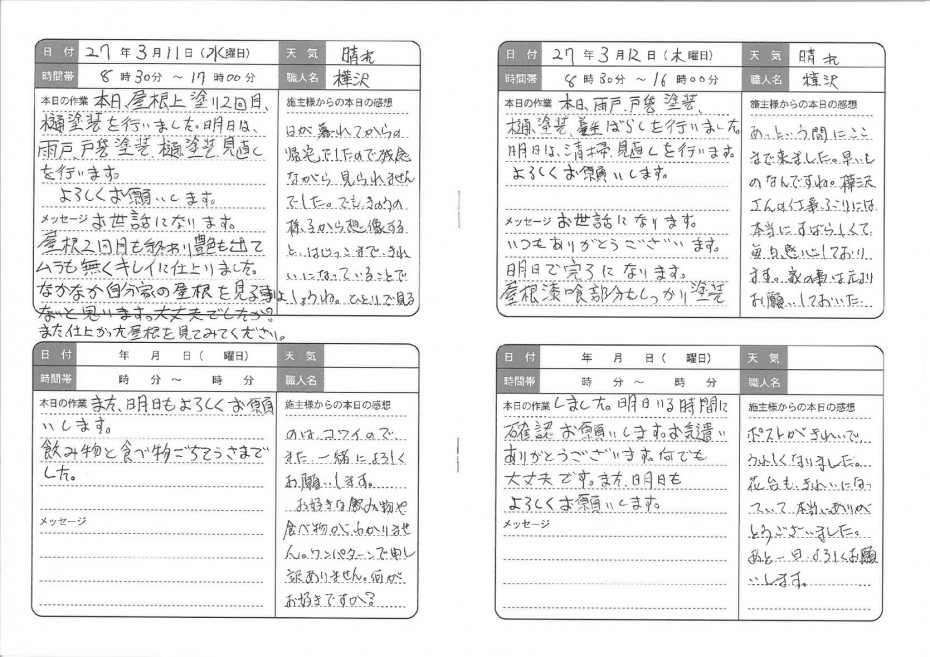 日付 27年3月11日(水曜日) 天気 晴れ
時間帯 8時30分 ～ 17時00分 職人名 樺沢
本日の作業 本日、屋根上塗り2回目、
樋塗装を行いました。明日は、
雨戸、戸袋塗装、樋塗装、見直し
を行います。
よろしくお願いします。
メッセージ お世話になります。
屋根2回目も終わり艶も出て
ムラも無くキレイに仕上りました。
なかなか自分家の屋根を見る事は
ないと思います。大丈夫でしたか?
また仕上がった屋根を見てみてください。
施主様からの本日の感想
日が暮れてからの
帰宅でしたので残念
ながら見られません
でした。でもきのうの
様子から想像する
と、はじっこまできれ
いになっていることで
しょうね。ひとりで見る
日付 年 月 日( 曜日) 天気
時間帯 時 分 ～ 時 分 職人名
本日の作業 また、明日もよろしくお願
いします。
飲み物と食べ物ごちそうさまで
した。
メッセージ
施主様からの本日の感想
のは、コワイので
また一緒によろしく
お願いします。
お好きな飲み物や
食べ物がわかりませ
ん。ワンパターンで申し
訳ありません。何が
お好きですか?
日付 27年3月12日(木曜日) 天気 晴れ
時間帯 8時30分 ～ 16時00分 職人名 樺沢
本日の作業 本日、雨戸、戸袋塗装、
樋塗装、養生ばらしを行いました。
明日は、清掃、見直しを行います。
よろしくお願いします。
メッセージ お世話になります。
いつもありがとうございます。
明日で完了になります。
屋根漆喰部分もしっかり塗装
施主様からの本日の感想
あっという間にここ
まで来ました。早いも
のなんですね。樺沢
さんの仕事ぶりには
本当にすばらしくて
毎日感心しており
ます。家の事は元より
お願いしておいた
日付 年 月 日( 曜日) 天気
時間帯 時 分 ～ 時 分 職人名
本日の作業 しました。明日いる時間に
確認お願いします。お気遣い
ありがとうございます。何でも
大丈夫です。また、明日も
よろしくお願いします。
メッセージ
施主様からの本日の感想
ポストがきれいで
うれしくなりました。
花台も、きれいになっ
ていて、本当にありが
とうございました。
あと一日、よろしくお願
いします。